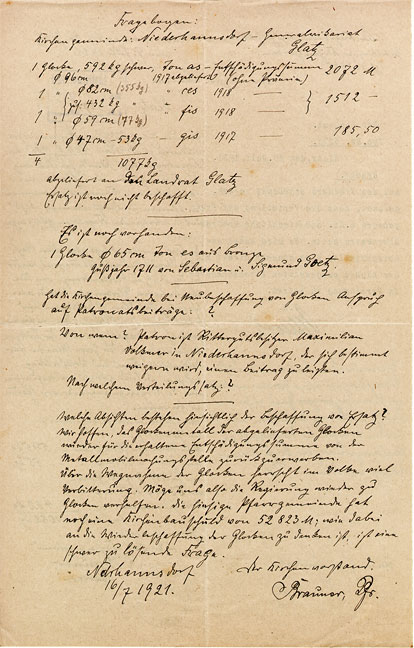 Fragebogen:
Kirchengemeinde: Niederhannsdorf – Generalvikariat
Glatz
1 Glocke, 592 kg schwer, Ton as – Entschädigungssumme 2072 M
Ø 96 cm 1917 abgeliefert (ohne Prämie)
1 " Ø 82 cm (355 kg) " ces 1918
zus. 432 kg } 1512 –
1 " Ø 59 cm (77 kg) " fis 1918
1 " Ø 47 cm – 53 kg – gis 1917 185,50
4 1077 kg
abgeliefert an Landrat Glatz
Ersatz ist noch nicht beschafft.
Es ist noch vorhanden:
1 Glocke Ø 65 cm Ton es aus Bronze
Gußjahr 1711 von Sebastian u. Sigmund Goetz
Hat die Kirchengemeinde bei Neubeschaffung von Glocken Anspruch
auf Patronatsbeiträge: ?
Von wem? Patron ist Rittergutsbesitzer Maximilian
Volkmer in Niederhannsdorf, der sich bestimmt
weigern wird, einen Beitrag zu leisten.
Nach welchem Verteilungssatz: ?
Welche Absichten bestehen hinsichtlich der Beschaffung von Ersatz?
Wir hoffen, das Glockenmetall der abgelieferten Glocken
wieder für die erhaltene Entschädigungssumme von der
Metallmobilmachungsstelle zurückzuerwerben.
Über die Wegnahme der Glocken herrscht im Volke viel
Verbitterung. Möge uns also die Regierung wieder zu
Glocken verhelfen. Die hiesige Pfarrgemeinde hat
noch eine Kirchenbauschuld von 52 823 M; wie dabei
an die Wiederbeschaffung der Glocken zu denken ist, ist eine
schwer zu lösende Frage.
Ndrhannsdorf Der Kirchenvorstand.
16/7 1921. Brauner, Pfr.